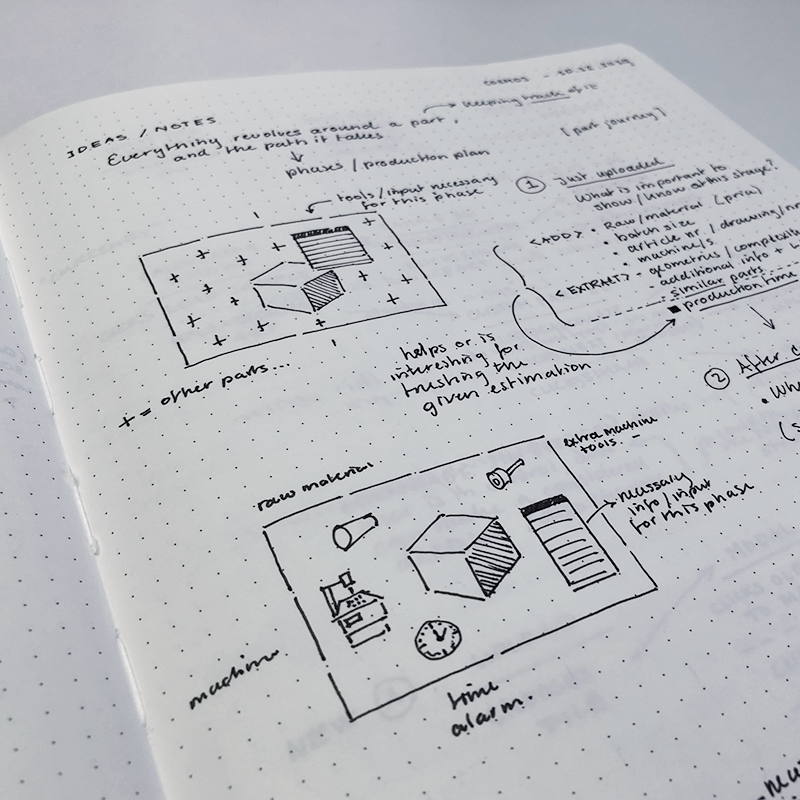 COSMOS - 10.12.2019
IDEAS / NOTES
→ keeping track of it
Everything revolves around a part,
and the path it takes
[part journey]
↓
phases / production plan
tools/input necessary
for this phase
① Just uploaded
What is important to
show/know at this stage?
<ADD> • Raw/material (price)
• batch size
• article nr / drawing/nr
• machine/s
<EXTRACT> - geometries / complexity
- additional info +
- similar parts
■ production time
helps or is
interesting for
trusting the
given estimation
+ = other parts...
② After
• Wh
(s
raw material
extra machine
tools. -
necessary
info/input
for this phase
machine
time
alarm.